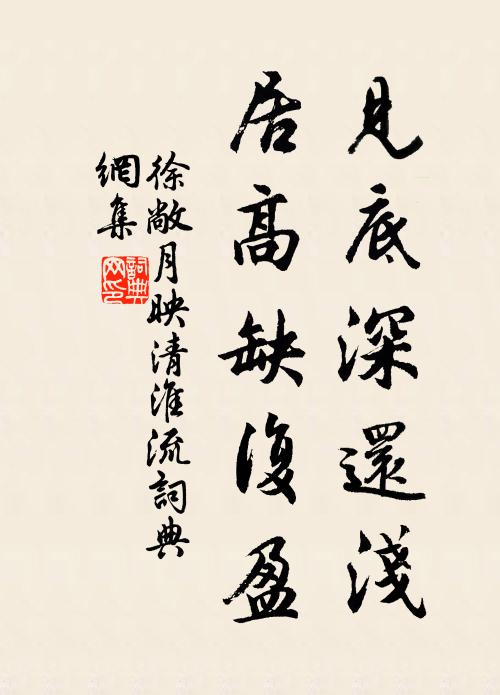 見底深還淺
居高缺復盈
徐敞月映清淮流詞典
網集
詞典
网印